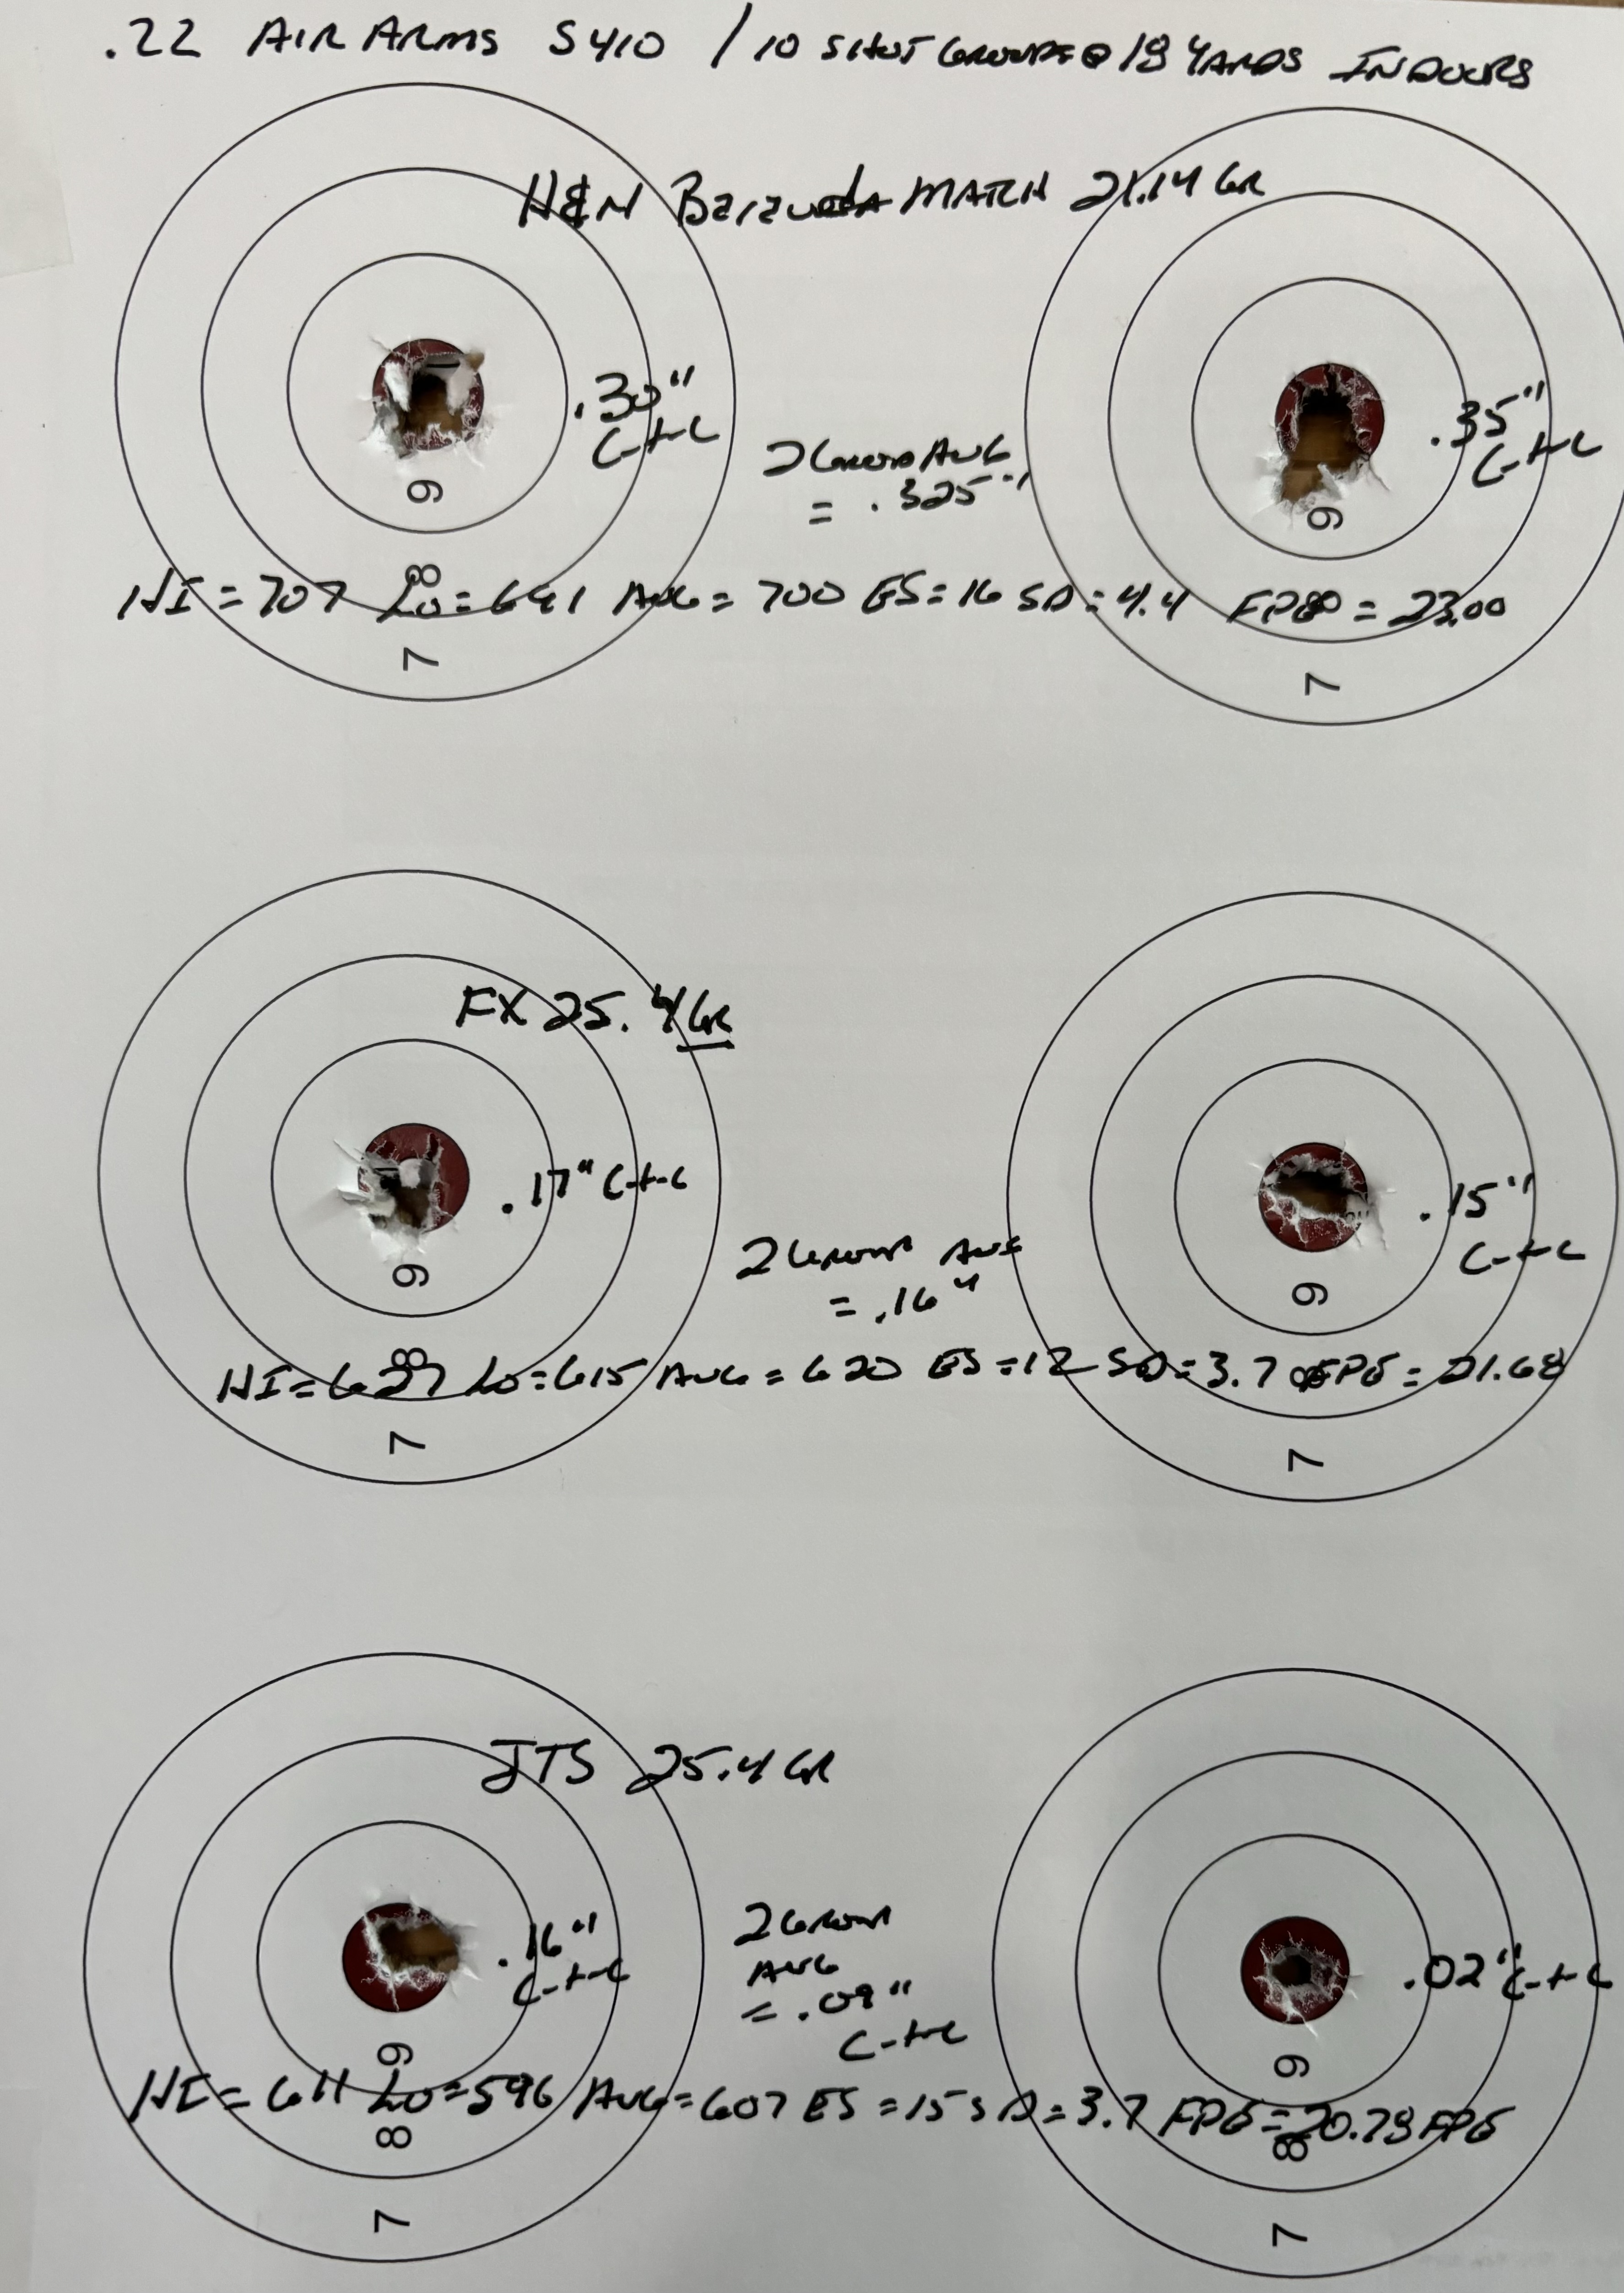 .22 AIR ARMS S410 / 10 SHOT GROUPS @ 18 YARDS INDOORS
H&N MATCH 21.14 GR
.30"
C-t-C
.35"
C-t-C
2 GROUP AVG
= .325"
9
9
8
HI = 707 LO = 691 AVG = 700 ES = 16 SD = 4.4 FPE = 23.00
7
7
FX 25.4 GR
.17" C-t-C
.15"
C-t-C
2 GROUP AVG
= .16"
9
9
8
HI = 627 LO = 615 AVG = 620 ES = 12 SD = 3.7 FPE = 21.68
7
7
JTS 25.4 GR
.16"
C-t-C
.02" C-t-C
2 GROUP
AVG
= .09"
C-t-C
9
9
HI = 611 LO = 596 AVG = 607 ES = 15 SD = 3.7 FPE = 20.78 FPE
8
8
7
7